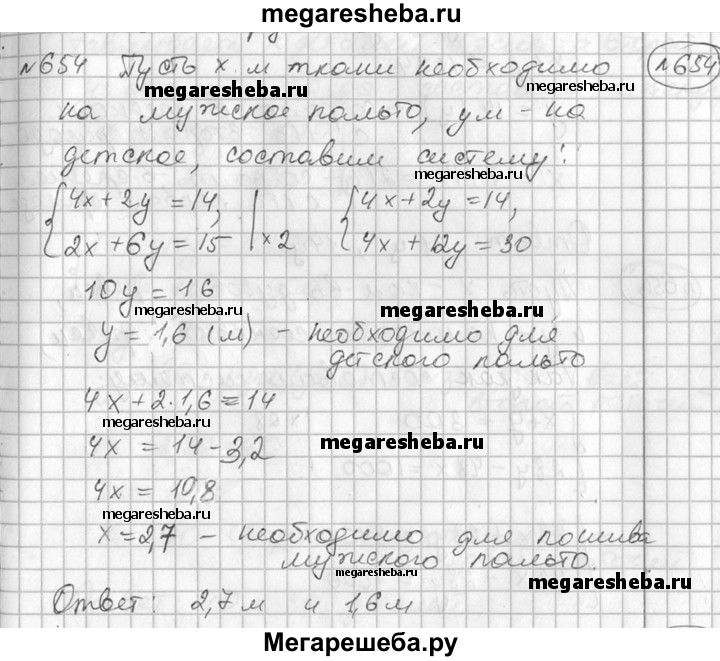 megaresheba.ru
№654 Пусть х м ткани необходимо №654
megaresheba.ru megaresheba.ru
на мужское пальто, y м - на
детское, составим систему:
megaresheba.ru
{4x + 2y = 14, {4x + 2y = 14,
{2x + 6y = 15 | x2 {4x + 12y = 30
10y = 16
megaresheba.ru megaresheba.ru
y = 1,6 (м) - необходимо для
детского пальто
4x + 2·1,6 = 14
megaresheba.ru
4x = 14 - 3,2 megaresheba.ru
4x = 10,8
megaresheba.ru
x = 2,7 - необходимо для пошива
мужского пальто.
megaresheba.ru megaresheba.ru
Ответ: 2,7 м и 1,6 м
Мегарешеба.ру